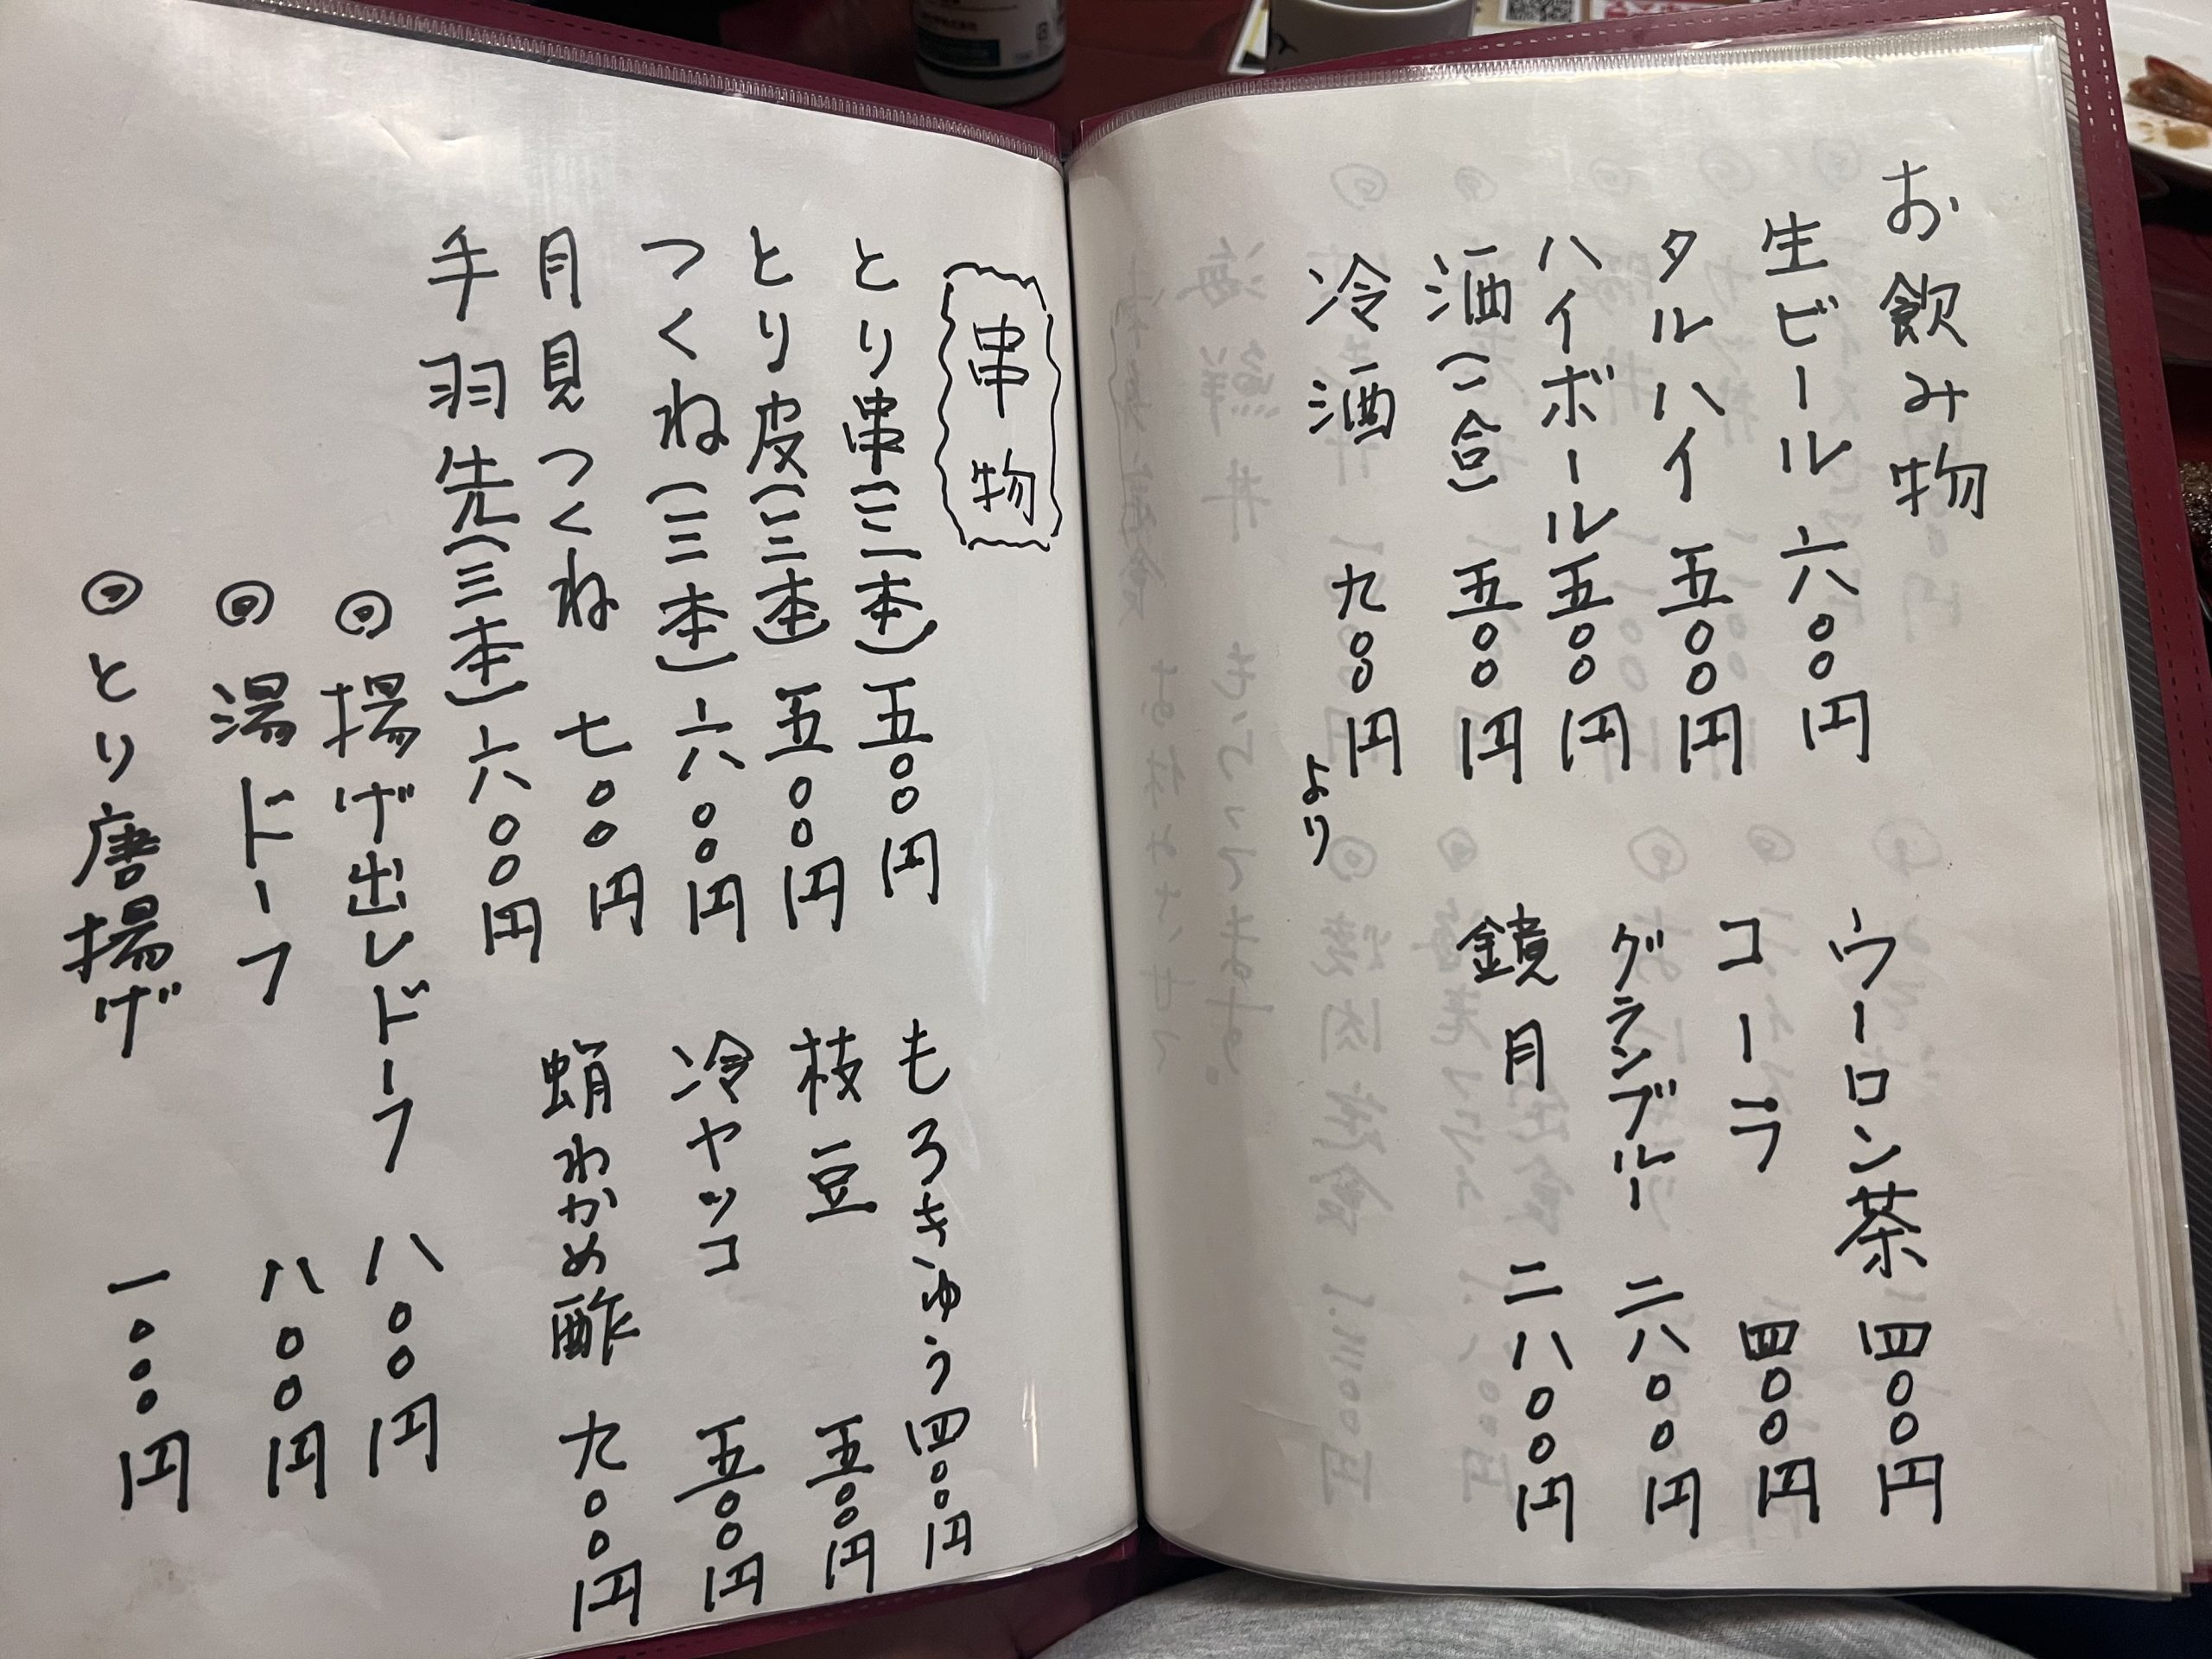 お飲み物
生ビール 六〇〇円
タルハイ 五〇〇円
ハイボール 五〇〇円
酒(一合) 五〇〇円
冷酒 九〇〇円より
ウーロン茶 四〇〇円
コーラ 四〇〇円
グランブルー 二八〇〇円
鏡月 二八〇〇円
串物
とり串(三本) 五〇〇円
とり皮(三本) 五〇〇円
つくね(三本) 六〇〇円
月見つくね 七〇〇円
手羽先(三本) 六〇〇円
もろきゅう 四〇〇円
枝豆 五〇〇円
冷ヤッコ 五〇〇円
蛸わかめ酢 九〇〇円
◎揚げ出しドーフ 八〇〇円
◎湯ドーフ 八〇〇円
◎とり唐揚げ 一〇〇〇円